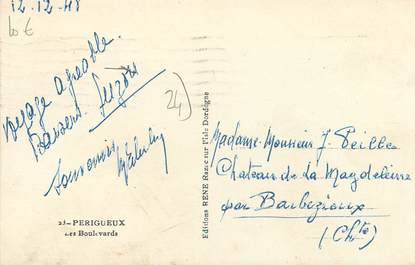 12-12-48
10 €
Voyage agréable.
Souvenirs
24)
23 - PERIGUEUX
Les Boulevards
Editions RENE Razac sur l'Isle Dordogne
Madame-Monsieur J. Peille
Chateau de la Magdeleine
par Barbezieux
(Chte)